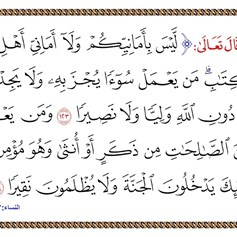 قَالَ تَعَالَىٰ: ﴿ لَّيْسَ بِأَمَانِيِّكُمْ وَلَآ أَمَانِيِّ أَهْلِ
ٱلْكِتَٰبِۗ مَن يَعْمَلْ سُوٓءًا يُجْزَ بِهِۦ وَلَا يَجِدْ
دُونِ ٱللَّهِ وَلِيًّا وَلَا نَصِيرًا ١٢٣ وَمَن يَعْ
ٱلصَّٰلِحَٰتِ مِن ذَكَرٍ أَوْ أُنثَىٰ وَهُوَ مُؤْمِنٌ
يَدْخُلُونَ ٱلْجَنَّةَ وَلَا يُظْلَمُونَ نَقِيرًا
النساء: